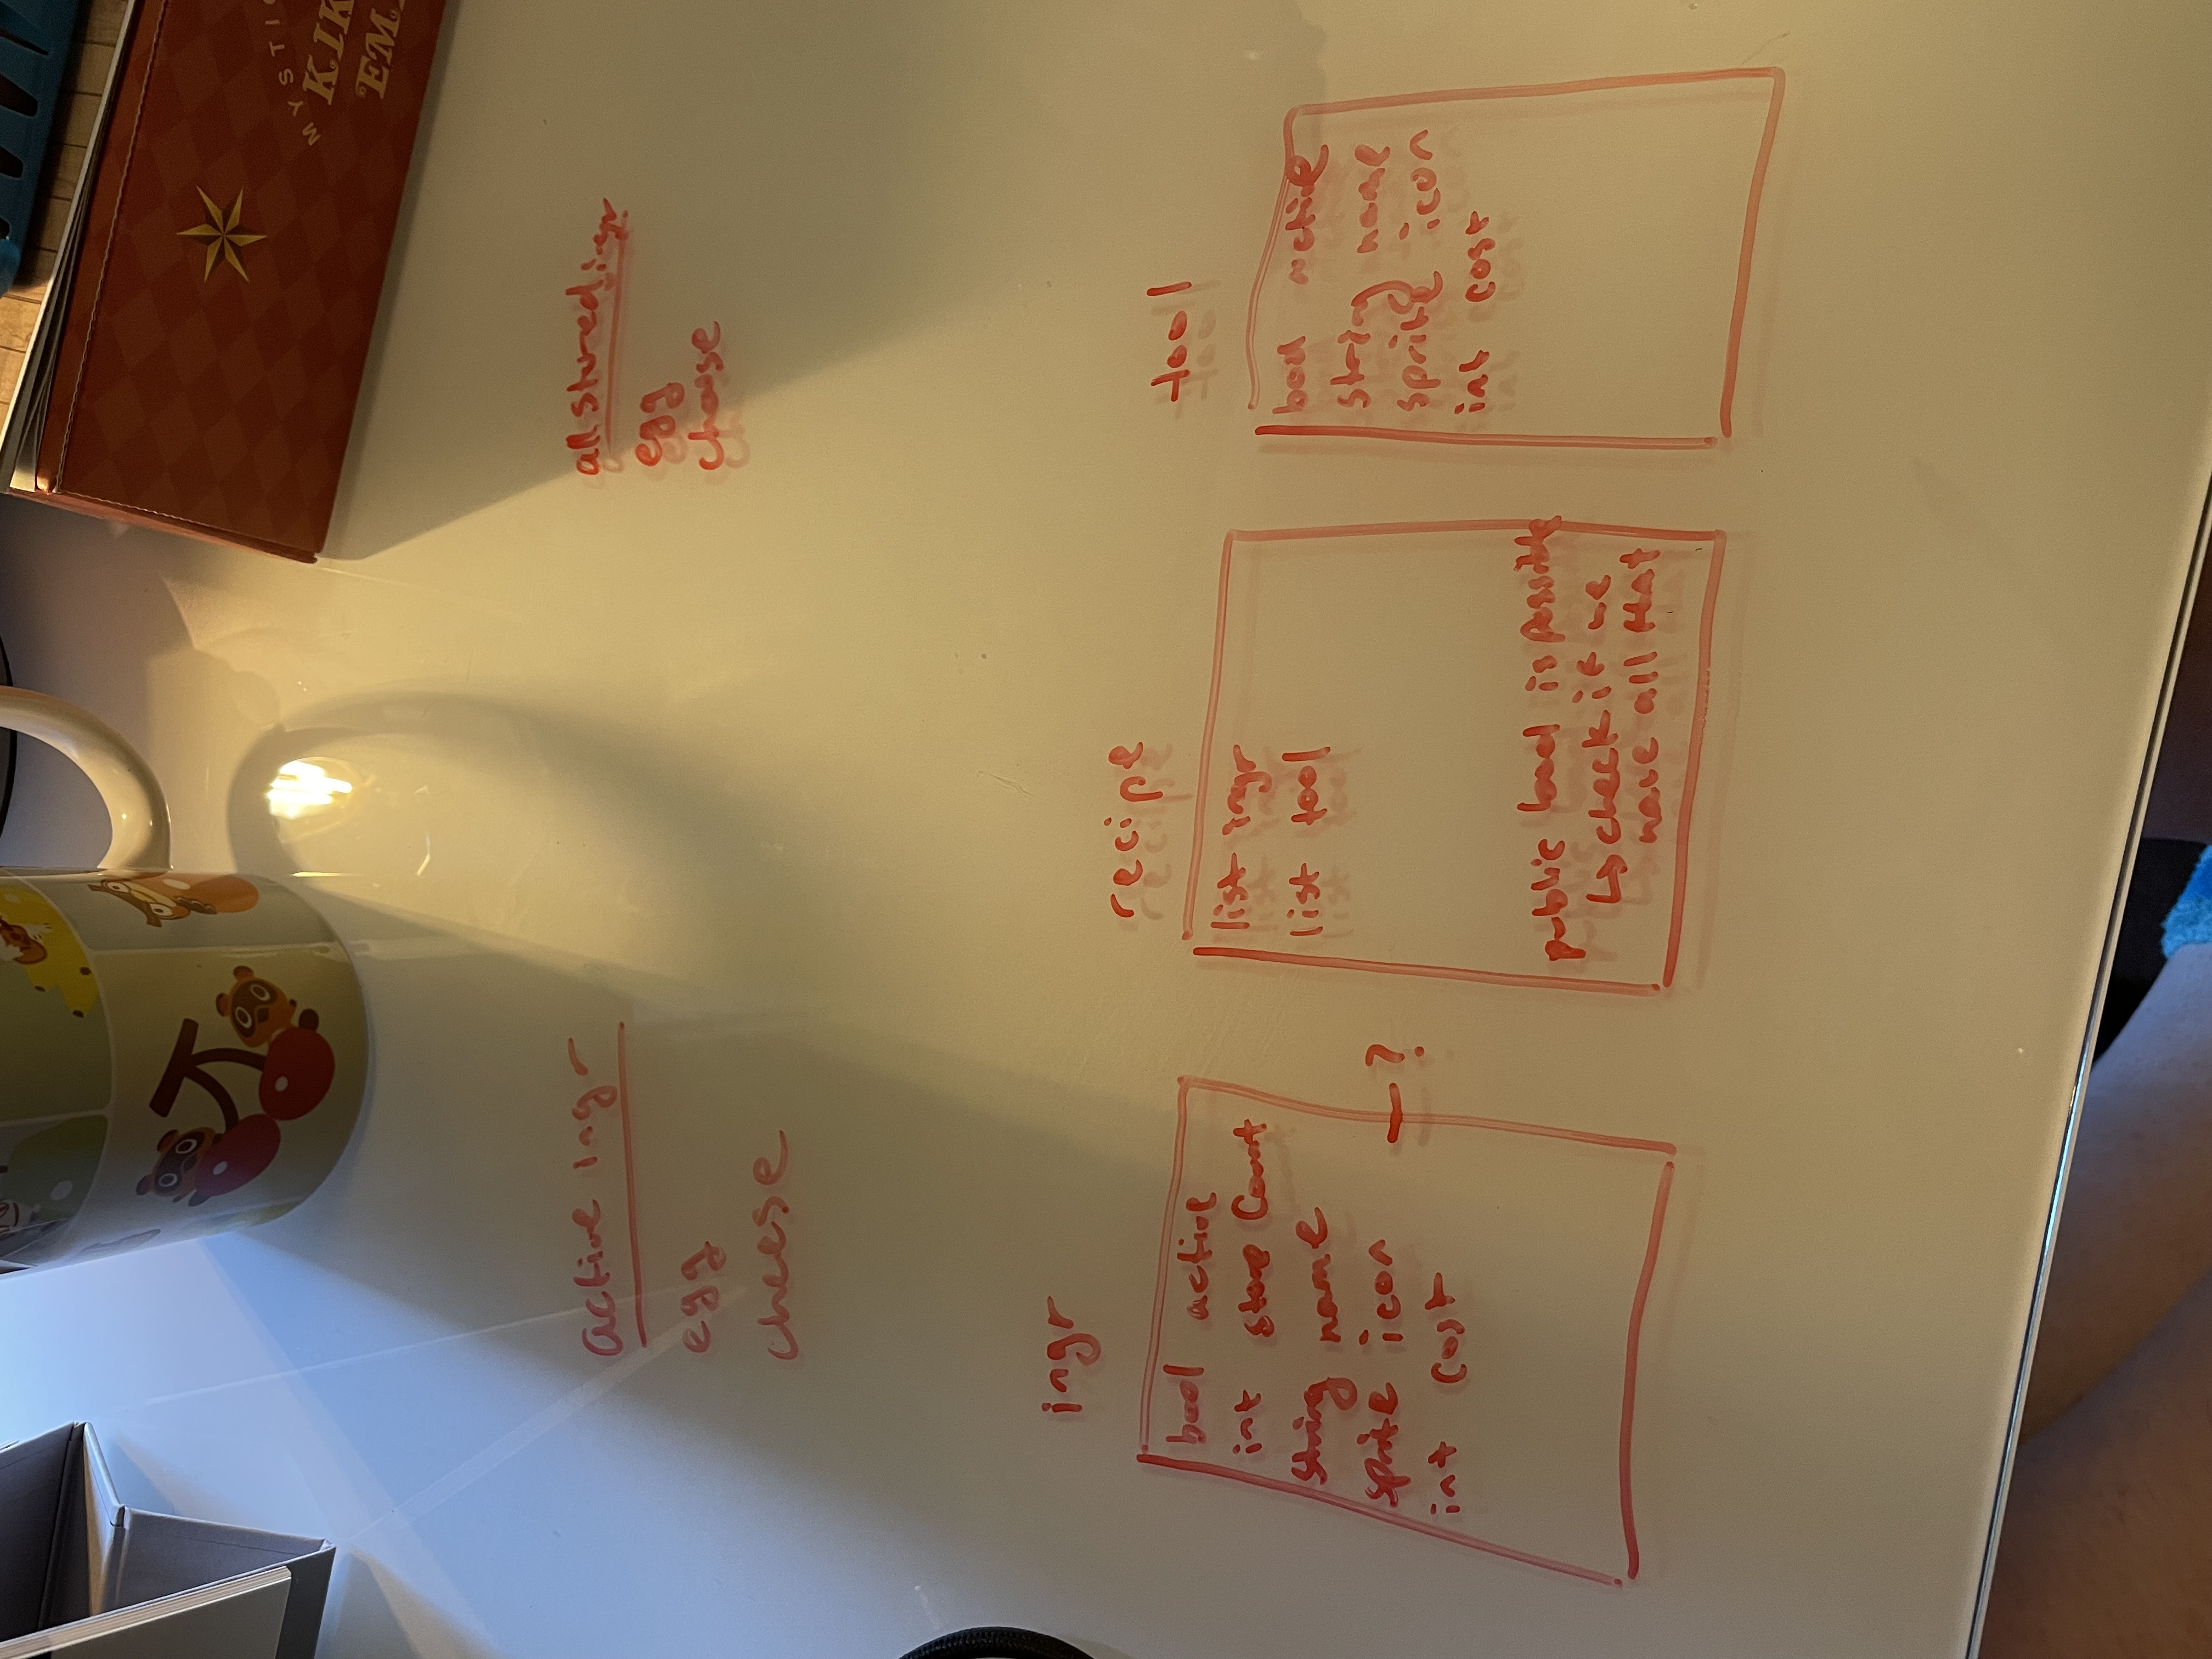 MYSTIC
KIK
EM
active ingr
egg
cheese
all stored ingr
egg
cheese
ingr
bool active
int store Count
string name
sprite icon
int cost
— ?
recipe
list ingr
list tool
public bool is possible
↳ check if we
have all that
tool
bool active
string name
sprite icon
int cost